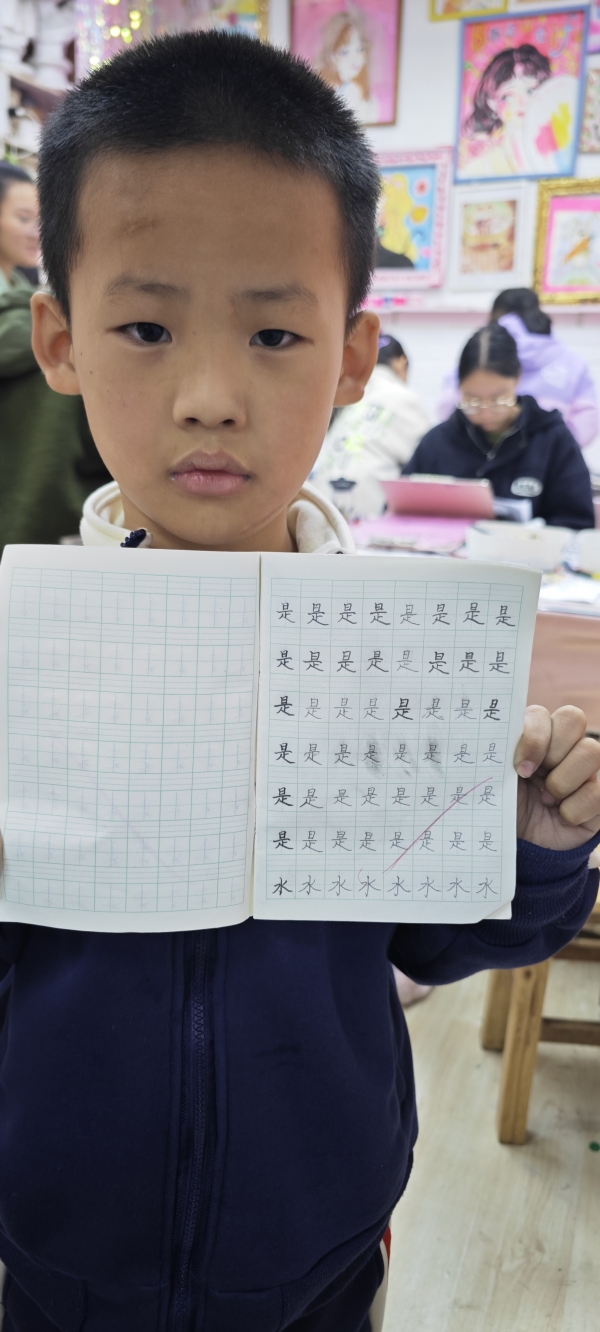 是是是是是是是是
是是是是是是是是
是是是是是是是是
是是是是是是是是
是是是是是是是是
是是是是是是是是
水水水水水水水水